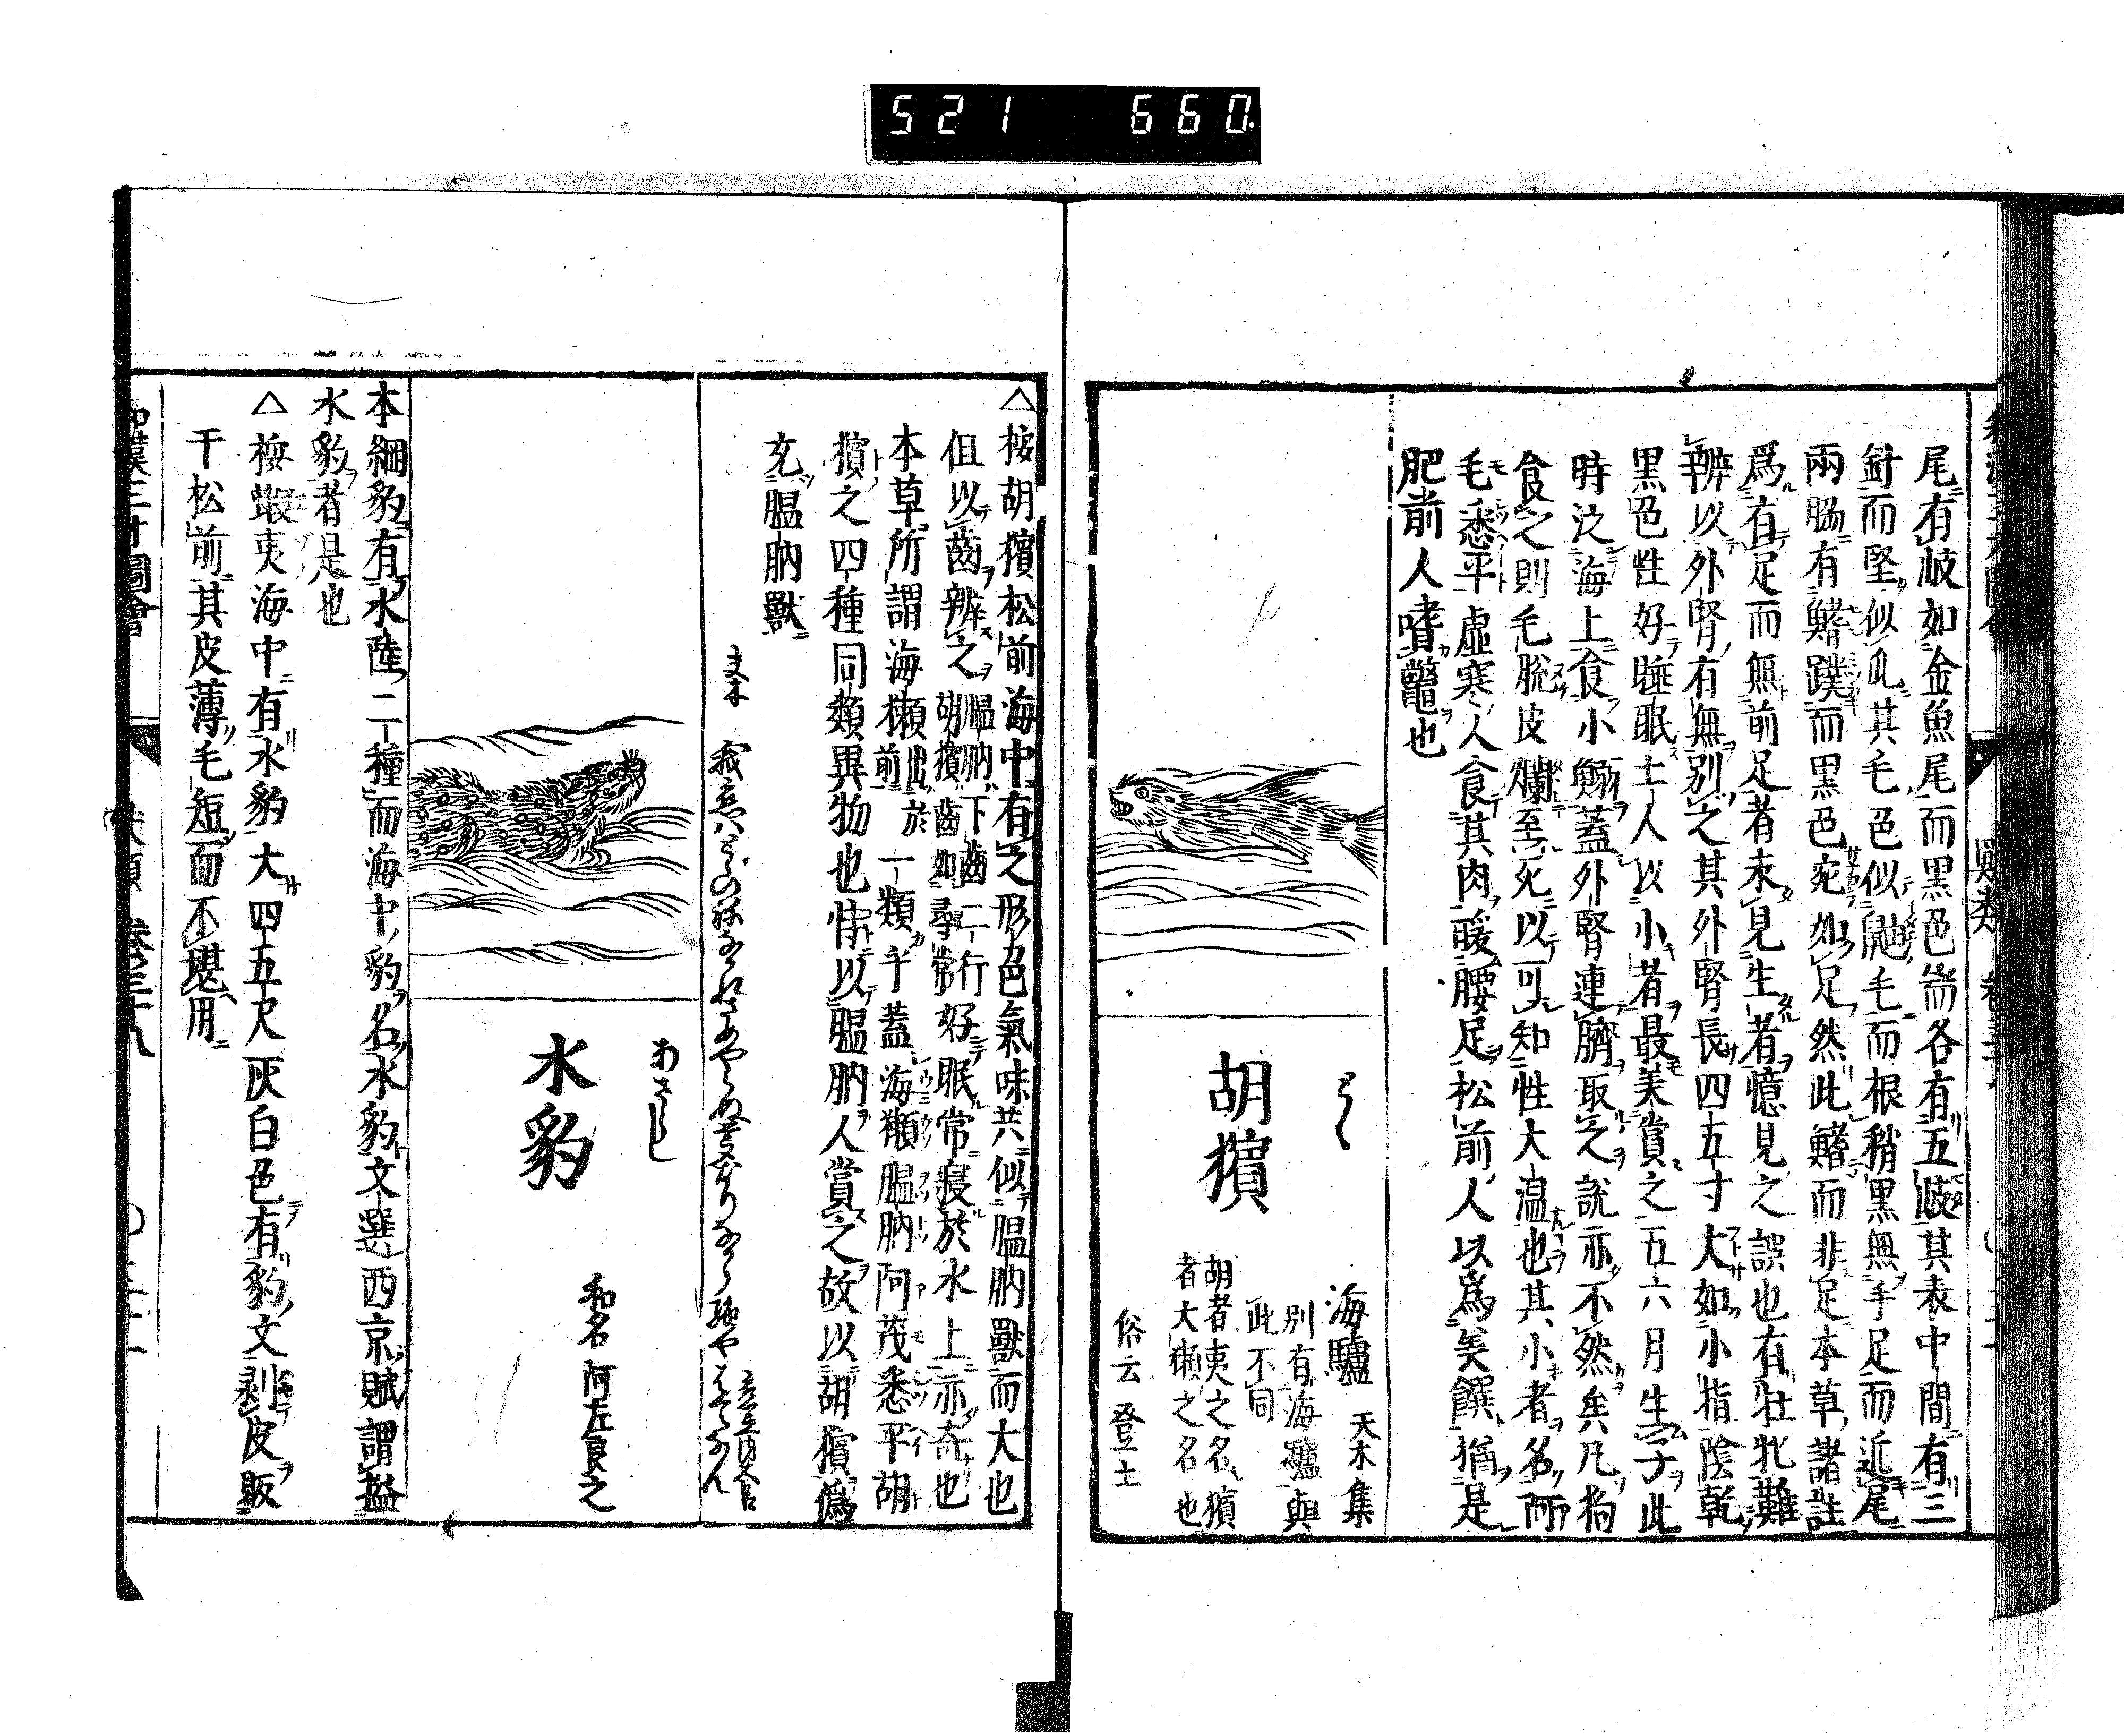 521 660.
尾有岐如金魚尾而黒色耑各有五岐其表中間有三
針而堅似爪其毛色似鼬毛而根稍黒無手足而近尾
兩脇有鰭蹼而黒色宛如足然此鰭而非足本草諸註
爲有足而無前足者未見生者憶見之誤也有牡牝難
辨以外腎有無別之其外腎長四五寸大如小指陰乾
黒色性好睡眠土人以小者最美賞之五六月生子此
時泛海上食小鰯蓋外腎連臍取之說亦不然矣凡狗
食之則毛脫皮爛至死以可知性大温也其小者名阿
毛悉平虛寒人食其肉暖腰足松前人以爲美饌猶是
肥前人嗜鼈也
胡獱
とゞ
海驢 夫木集
別有海驢與
此不同
胡者夷之名獱
者大獺之名也
俗云登土
△桉胡獱松前海中有之形色氣味共似膃肭獸而大也
但以齒辨之 膃肭下齒二行
胡獱齒如尋常 好眠常寝於水上亦奇也
本草所謂海獺 出於
前 一類乎蓋海獺膃肭阿茂悉平胡
獱之四種同類異物也恠以膃肭人賞之故以胡獱僞
充膃肭獸
夫木
水豹
あさらし
和名 阿左良之
本綱豹有水陸二種而海中豹名水豹文選西京賦謂搤
水豹者是也
△桉蝦夷海中有水豹大四五尺灰白色有豹文剥皮販
于松前其皮薄毛短而不堪用
和漢三才圖會